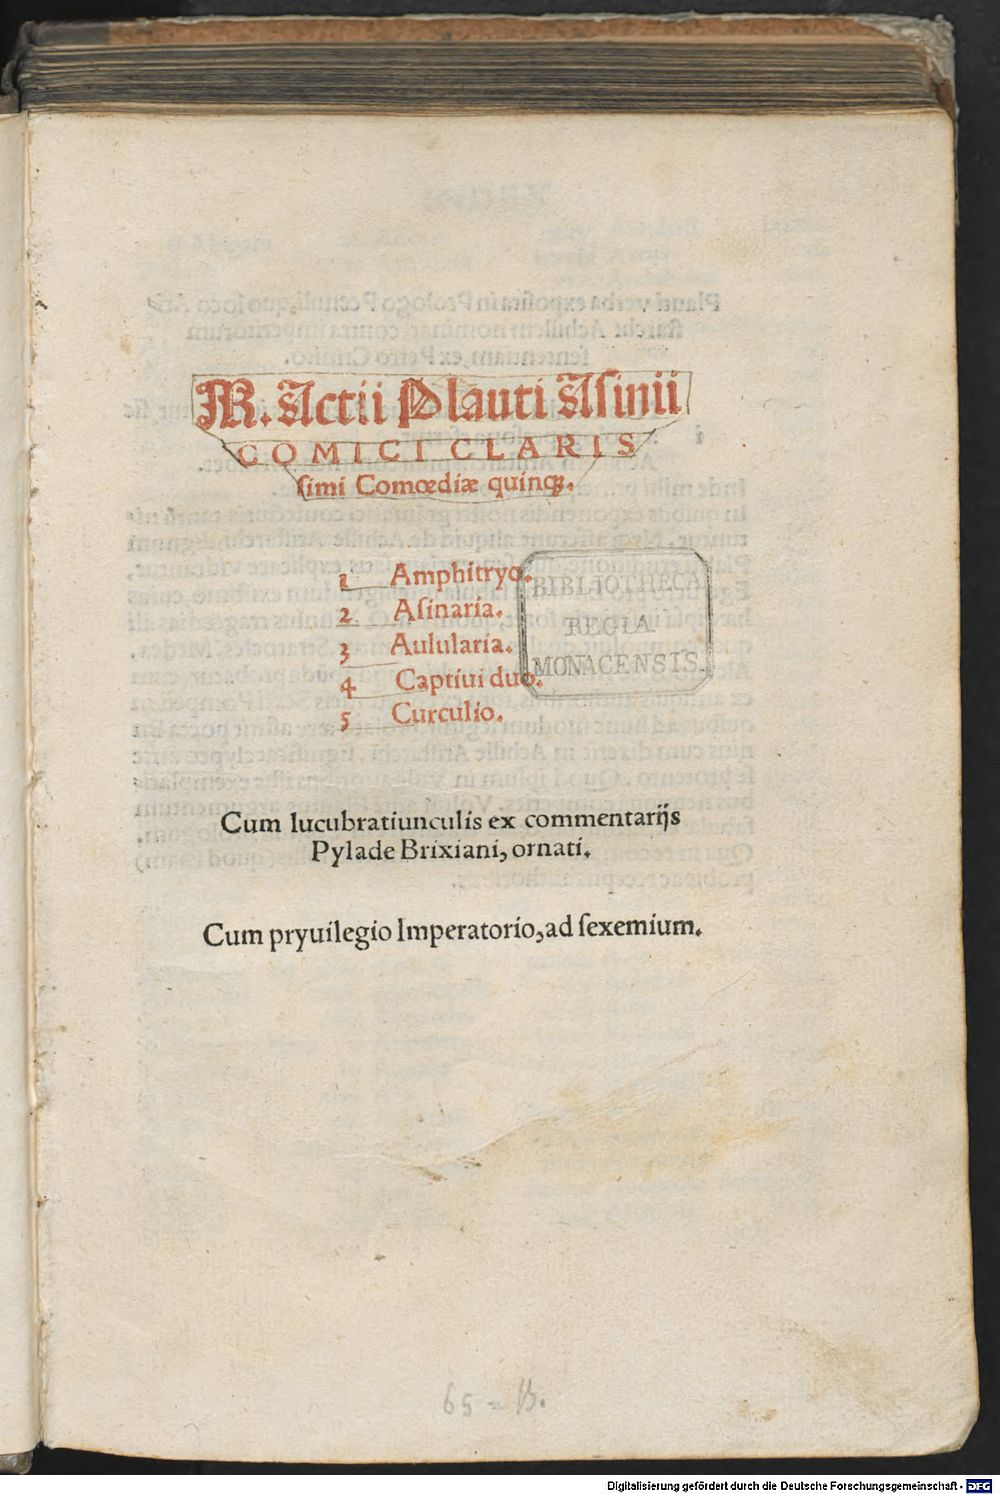 M. Actii Plauti Asinii
COMICI CLARIS
ſimi Comœdiæ quinqꝫ.
1 Amphitryo.
2 Aſinaria.
3 Aulularia.
4 Captiui duo.
5 Curculio.
BIBLIOTHECA
REGIA
MONACENSIS.
Cum lucubratiunculis ex commentarijs
Pylade Brixiani, ornati.
Cum pryuilegio Imperatorio, ad ſexemium.
Digitalisierung gefördert durch die Deutsche Forschungsgemeinschaft - DFG